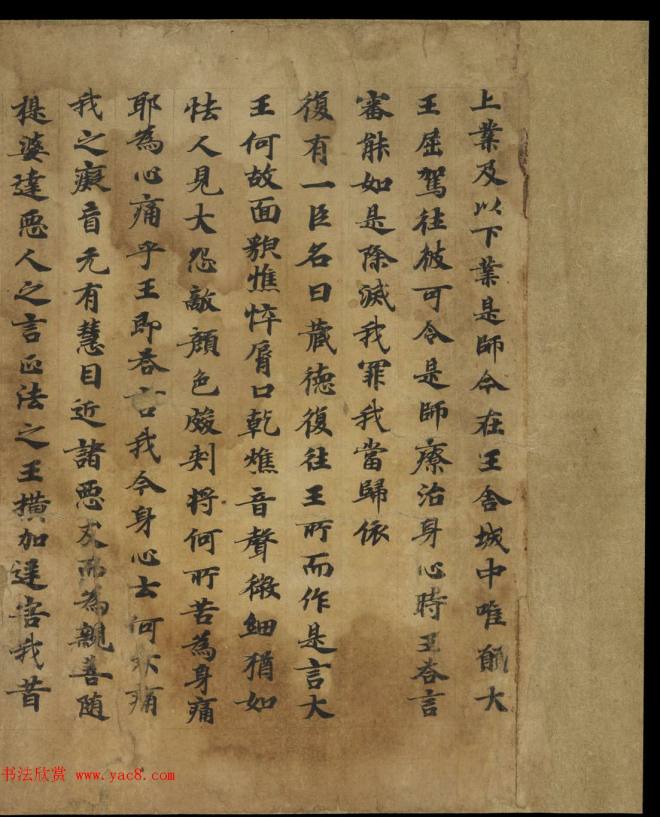 上業及以下業是師今在王舍城中唯願大
王屈駕往彼可令是師療治身心時王荅言
審能如是除滅我罪我當歸依
復有一臣名曰藏德復往王所而作是言大
王何故面貌憔悴脣口乾燋音聲微細猶如
怯人見大怨敵顏色皴剥將何所苦為身痛
耶為心痛乎王即荅言我今身心云何不痛
我之癡盲无有慧目近諸惡友而為親善随
提婆達惡人之言正法之王横加逆害我昔
书法欣赏 www.yac8.com